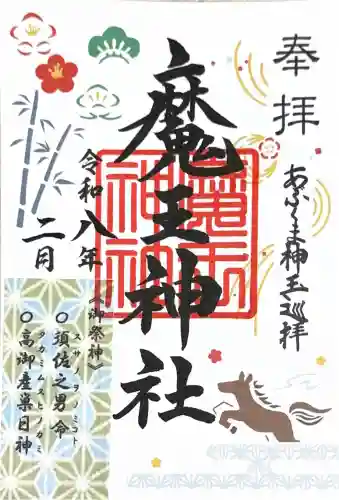 奉拝
あぶくま神玉巡拝
魔王神社
令和八年
二月
《御祭神》
スサノヲノミコト
○須佐之男命
タカミムスヒノカミ
○高御産巣日神